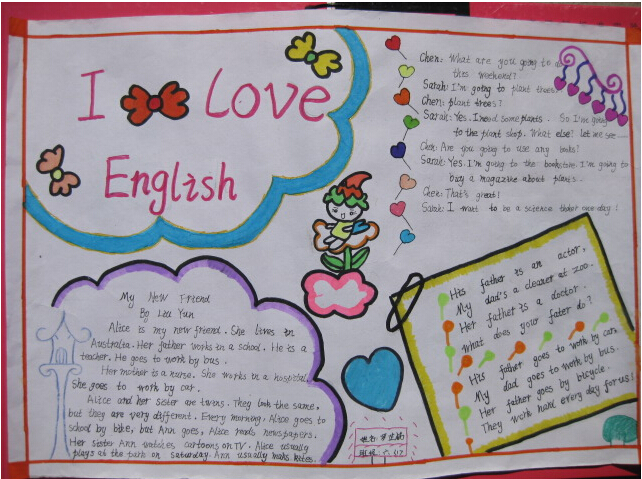 I Love
English
Chen: What are you going to do
this weekend?
Sarah: I'm going to plant trees.
Chen: plant trees?
Sarah: Yes. I need some plants. So I'm going
to the plant shop. What else? let me see......
Chen: Are you going to use any books?
Sarah: Yes. I'm going to the bookstore. I'm going to
buy a magazine about plants.
Chen: That's great!
Sarah: I want to be a science one day!
My New Friend
By Liu Yun
Alice is my new friend. She lives in
Australia. Her father works in a school. He is a
teacher. He goes to work by bus.
Her mother is a nurse. She works in a hospital.
She goes to work by car.
Alice and her sister are twins. They look the same,
but they are very different. Every morning, Alice goes to
school by bike, but Ann goes, Alice reads newspapers.
Her sister Ann watches cartoons on TV. Alice usually
plays at the park on saturday. Ann usually maks kites.
His father is an actor,
My dad's a cleaner at zoo.
Her father is a doctor.
What does your fater do?
His father goes to work by car.
My dad goes to work by bus.
Her father goes by bicycle.
They work hard every day for us!
姓名:
班级: